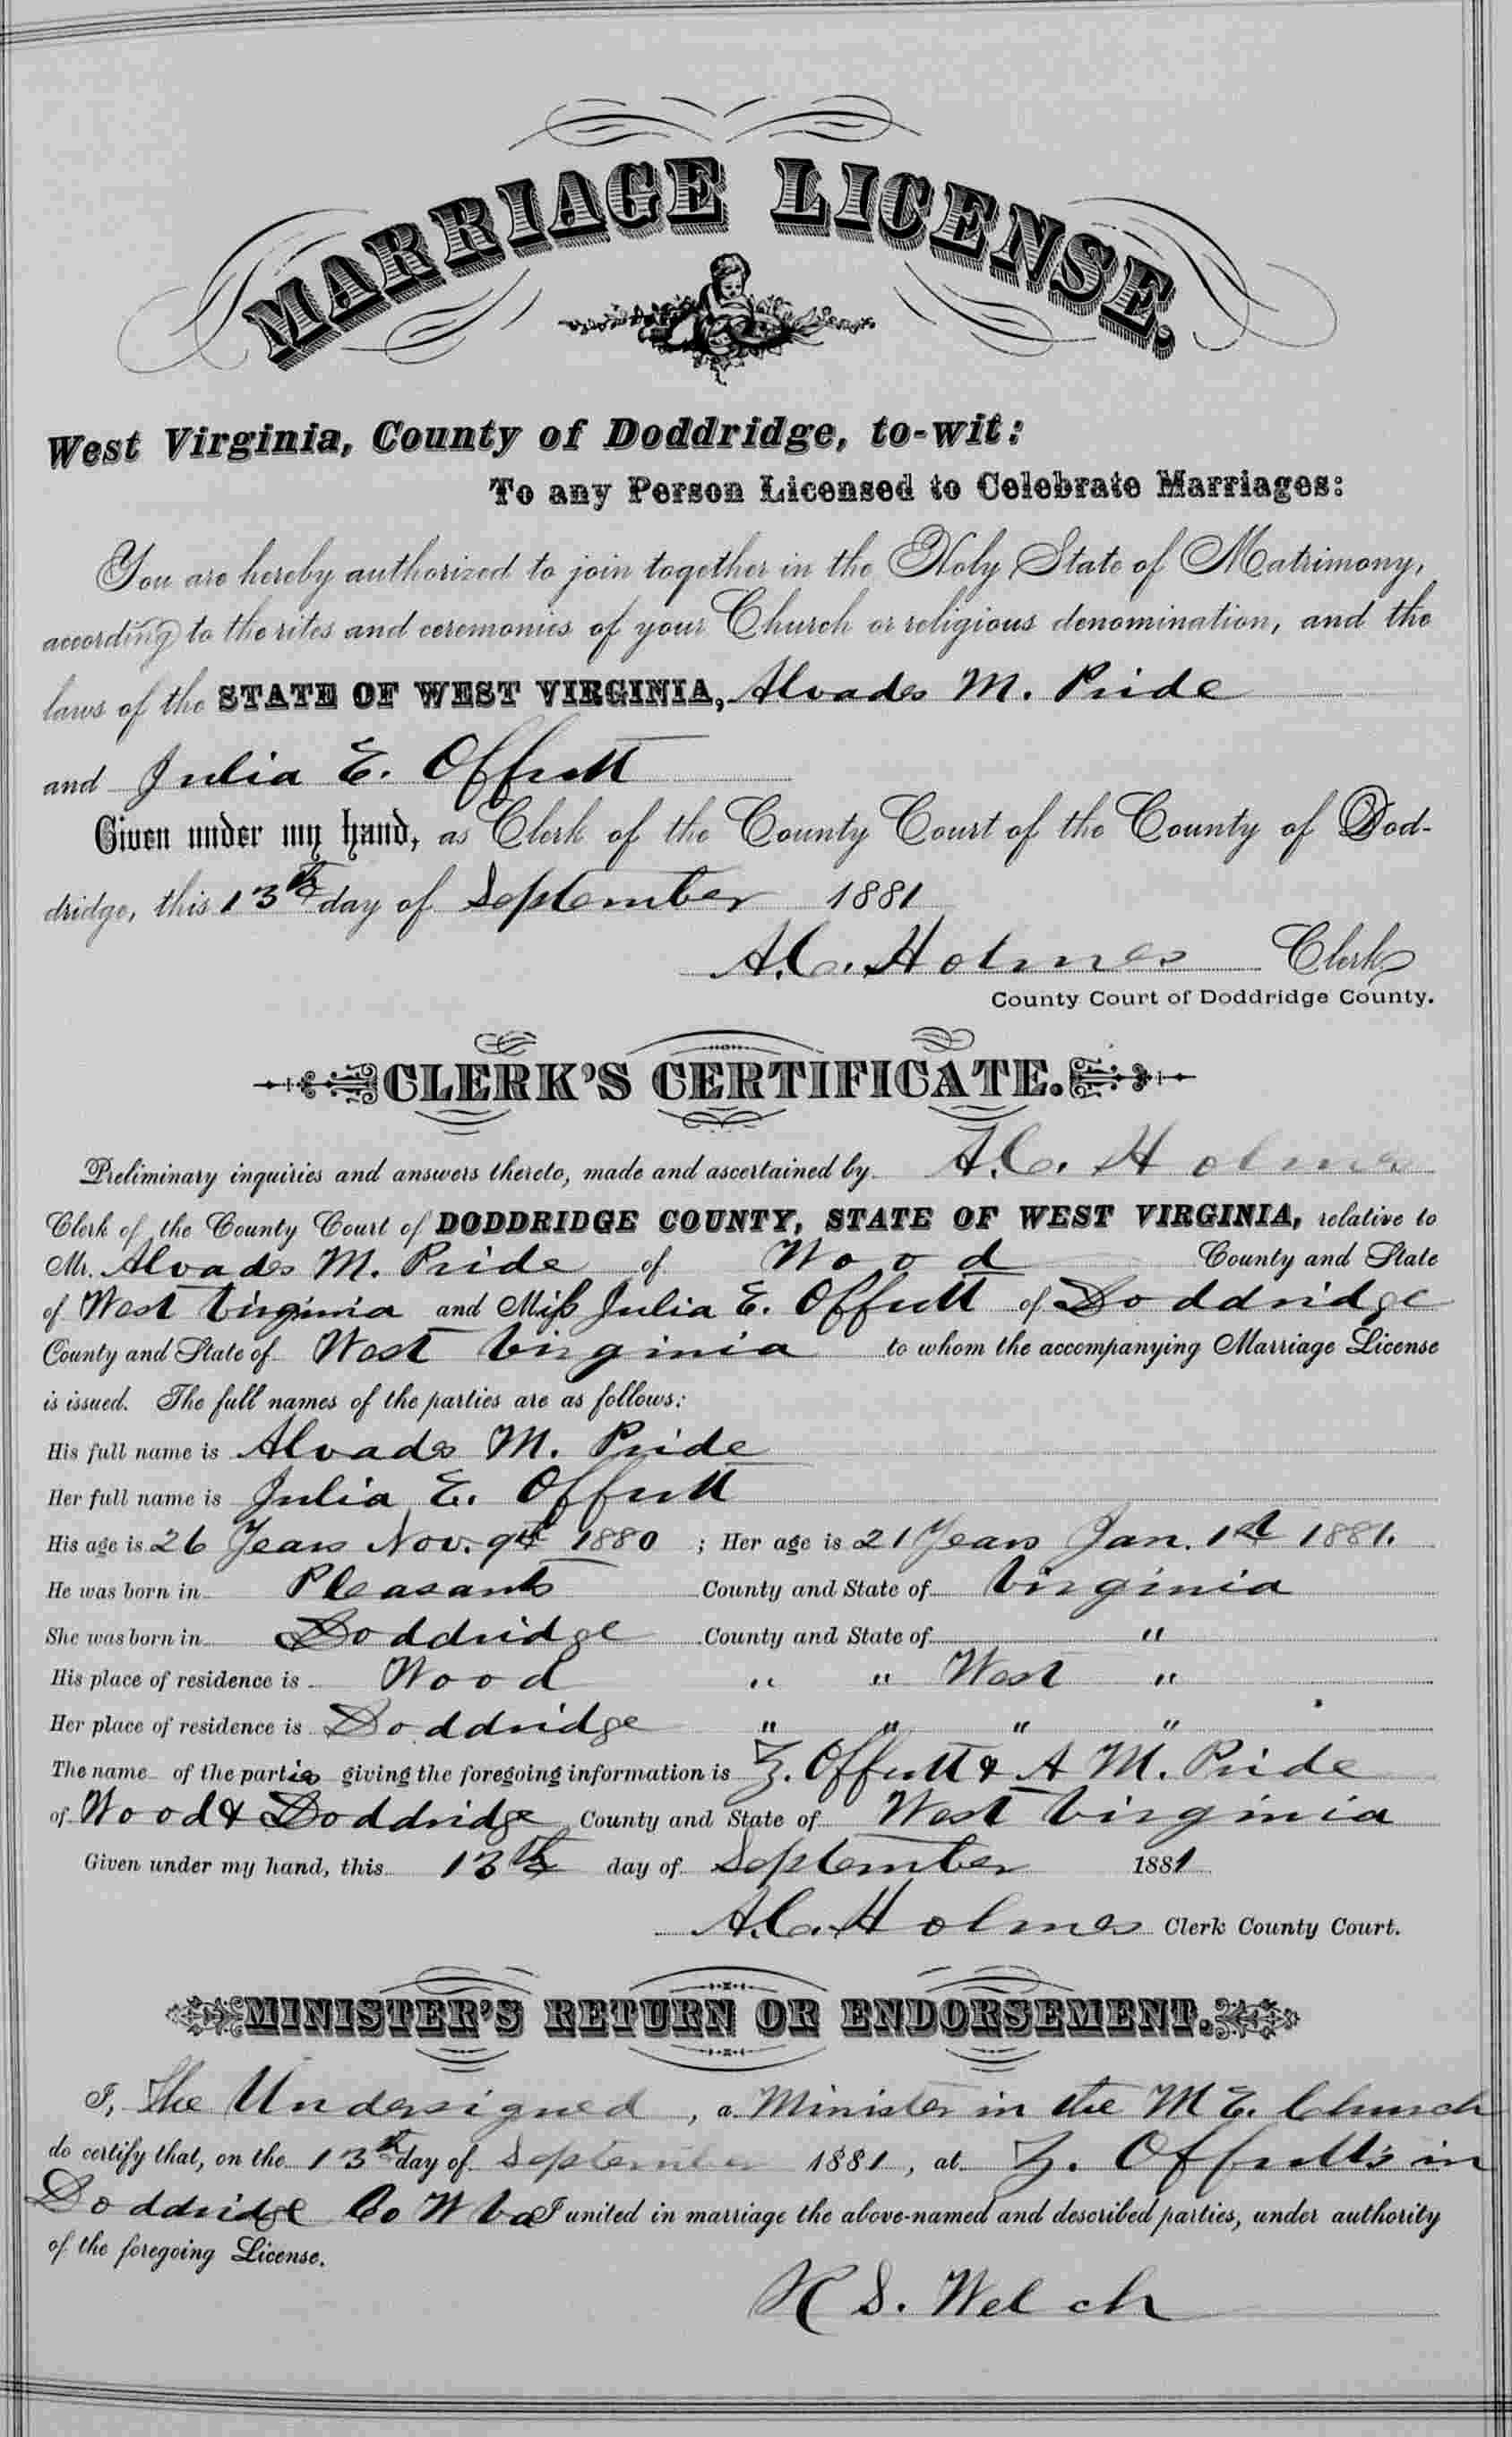 MARRIAGE LICENSE.
West Virginia, County of Doddridge, to-wit:
To any Person Licensed to Celebrate Marriages:
You are hereby authorized to join together in the Holy State of Matrimony,
according to the rites and ceremonies of your Church or religious denomination, and the
laws of the STATE OF WEST VIRGINIA, Alvades M. Pride
and Julia E. Offutt
Given under my hand, as Clerk of the County Court of the County of Dod-
dridge, this 13th day of September 1881
A.C. Holmes Clerk
County Court of Doddridge County.
CLERK'S CERTIFICATE.
Preliminary inquiries and answers thereto, made and ascertained by A.C. Holmes
Clerk of the County Court of DODDRIDGE COUNTY, STATE OF WEST VIRGINIA, relative to
Mr. Alvades M. Pride of Wood County and State
of West Virginia and Miss Julia E. Offutt of Doddridge
County and State of West Virginia to whom the accompanying Marriage License
is issued. The full names of the parties are as follows:
His full name is Alvades M. Pride
Her full name is Julia E. Offutt
His age is 26 Years Nov. 9th 1880 ; Her age is 21 Years Jan. 1st 1881.
He was born in Pleasants County and State of Virginia
She was born in Doddridge County and State of "
His place of residence is Wood " " West "
Her place of residence is Doddridge " " " "
The name of the parties giving the foregoing information is Z. Offutt & A M. Pride
of Wood & Doddridge County and State of West Virginia
Given under my hand, this 13th day of September 1881
A.C. Holmes Clerk County Court.
MINISTER'S RETURN OR ENDORSEMENT.
I, The Undersigned, a Minister in the M E. Church
do certify that, on the 13th day of September 1881, at Z. Offutt's in
Doddridge Co W Va I united in marriage the above-named and described parties, under authority
of the foregoing License.
S. Welch